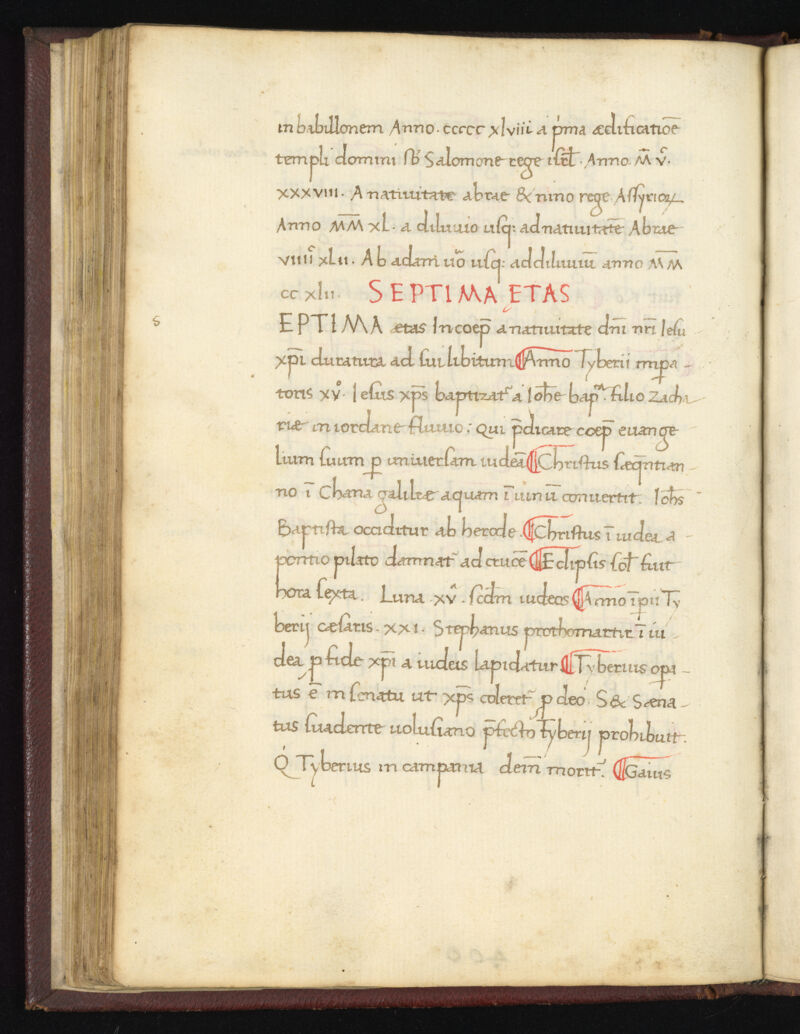 in babillonem Anno. ccccc xlviii a p̄ma ædificatiōe
templi domini sb̄ Salomone rege isrl̄. Anno. M̄ v.
xxxviii. A natiuitate abrae & nino rege Assyrioꝝ
Anno M̄M̄ xl. a diluuio usq; ad natiuitatē Abrae
viiii xlii. Ab adam uo usq; ad diluuiū anno M̄M̄
cc xlii. SEPTIMA ETAS
s
EPTIMA ætas Incoep̄ a natiuitate dn̄i nr̄i Iesu
xp̄i duratura ad sui libitum ¶Anno Tyberii impa-
toris xv. Iesus xp̄s baptizat a Iohe bap. filio Zacha
riæ in iordane fluuio; Qui p̄dicare coep̄ euange
lium suum ꝑ uniuersam iudeā ¶Christus sæqn̄ti an-
no ī Chana galileæ aquam ī uinū conuertit. Iohs
Baptista occiditur ab herode. ¶Christus ī iudea a
pontio pilato damnat ad crucē ¶Eclipsis sol̄ fuit
hora sexta. Luna xv. scd̄m iudeos ¶Anno īpii Ty
berij cæsaris. xxi. Stephanus prothomartir ī iu
dea p fide xp̄i a iudeis lapidatur ¶Tyberius opa-
tus ē in senatu ut xp̄s coleret p deo. S& Sæna-
tus suadente uolusiano p̄fecto Tyberij prohibuit.
Q Tyberius in campania dem̄ morit. ¶Gaius